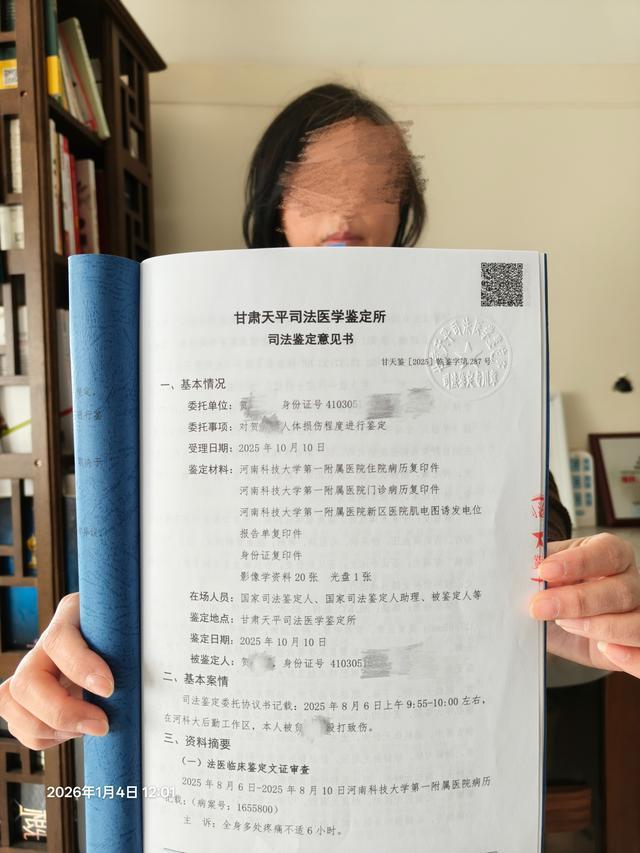 甘肃天平司法医学鉴定所
司法鉴定意见书
甘天鉴［2025］临鉴字第287号
一、基本情况
委托单位：贺 身份证号410305
委托事项：对贺 人体损伤程度进行鉴定
受理日期：2025年10月10日
鉴定材料：河南科技大学第一附属医院住院病历复印件
河南科技大学第一附属医院门诊病历复印件
河南科技大学第一附属医院新区医院肌电图诱发电位
报告单复印件
身份证复印件
影像学资料20张 光盘1张
在场人员：国家司法鉴定人、国家司法鉴定人助理、被鉴定人等
鉴定地点：甘肃天平司法医学鉴定所
鉴定日期：2025年10月10日
被鉴定人：贺 ，身份证号410305
二、基本案情
司法鉴定委托协议书记载：2025年8月6日上午9:55-10:00左右，
在河科大后勤工作区，本人被 殴打致伤。
三、资料摘要
（一）法医临床鉴定文证审查
2025年8月6日-2025年8月10日河南科技大学第一附属医院病历
记载：（病案号：1655800）
主 诉：全身多处疼痛不适6小时。
2026年1月4日 12:01